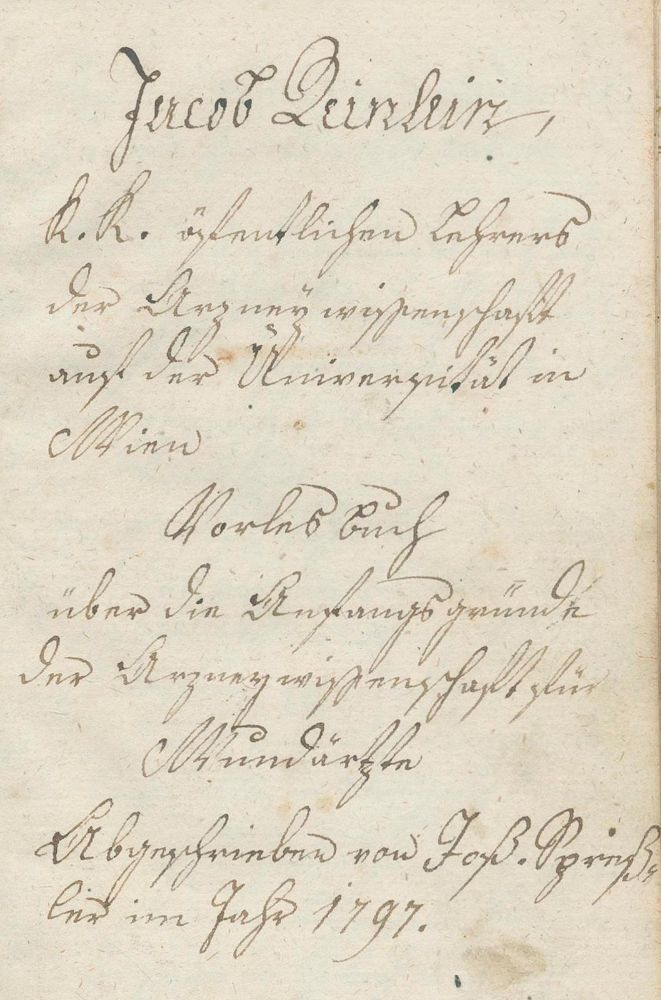 Jacob Reinlein,
K. K. öffentlichen Lehrers
der Arzneywissenschaft
auf der Universität in
Wien
Vorlesbuch
über die Anfangsgründe
der Arzneywissenschaft für
Wundärtzte
Abgeschrieben von Joß. Spreß=
ler im Jahr 1797.